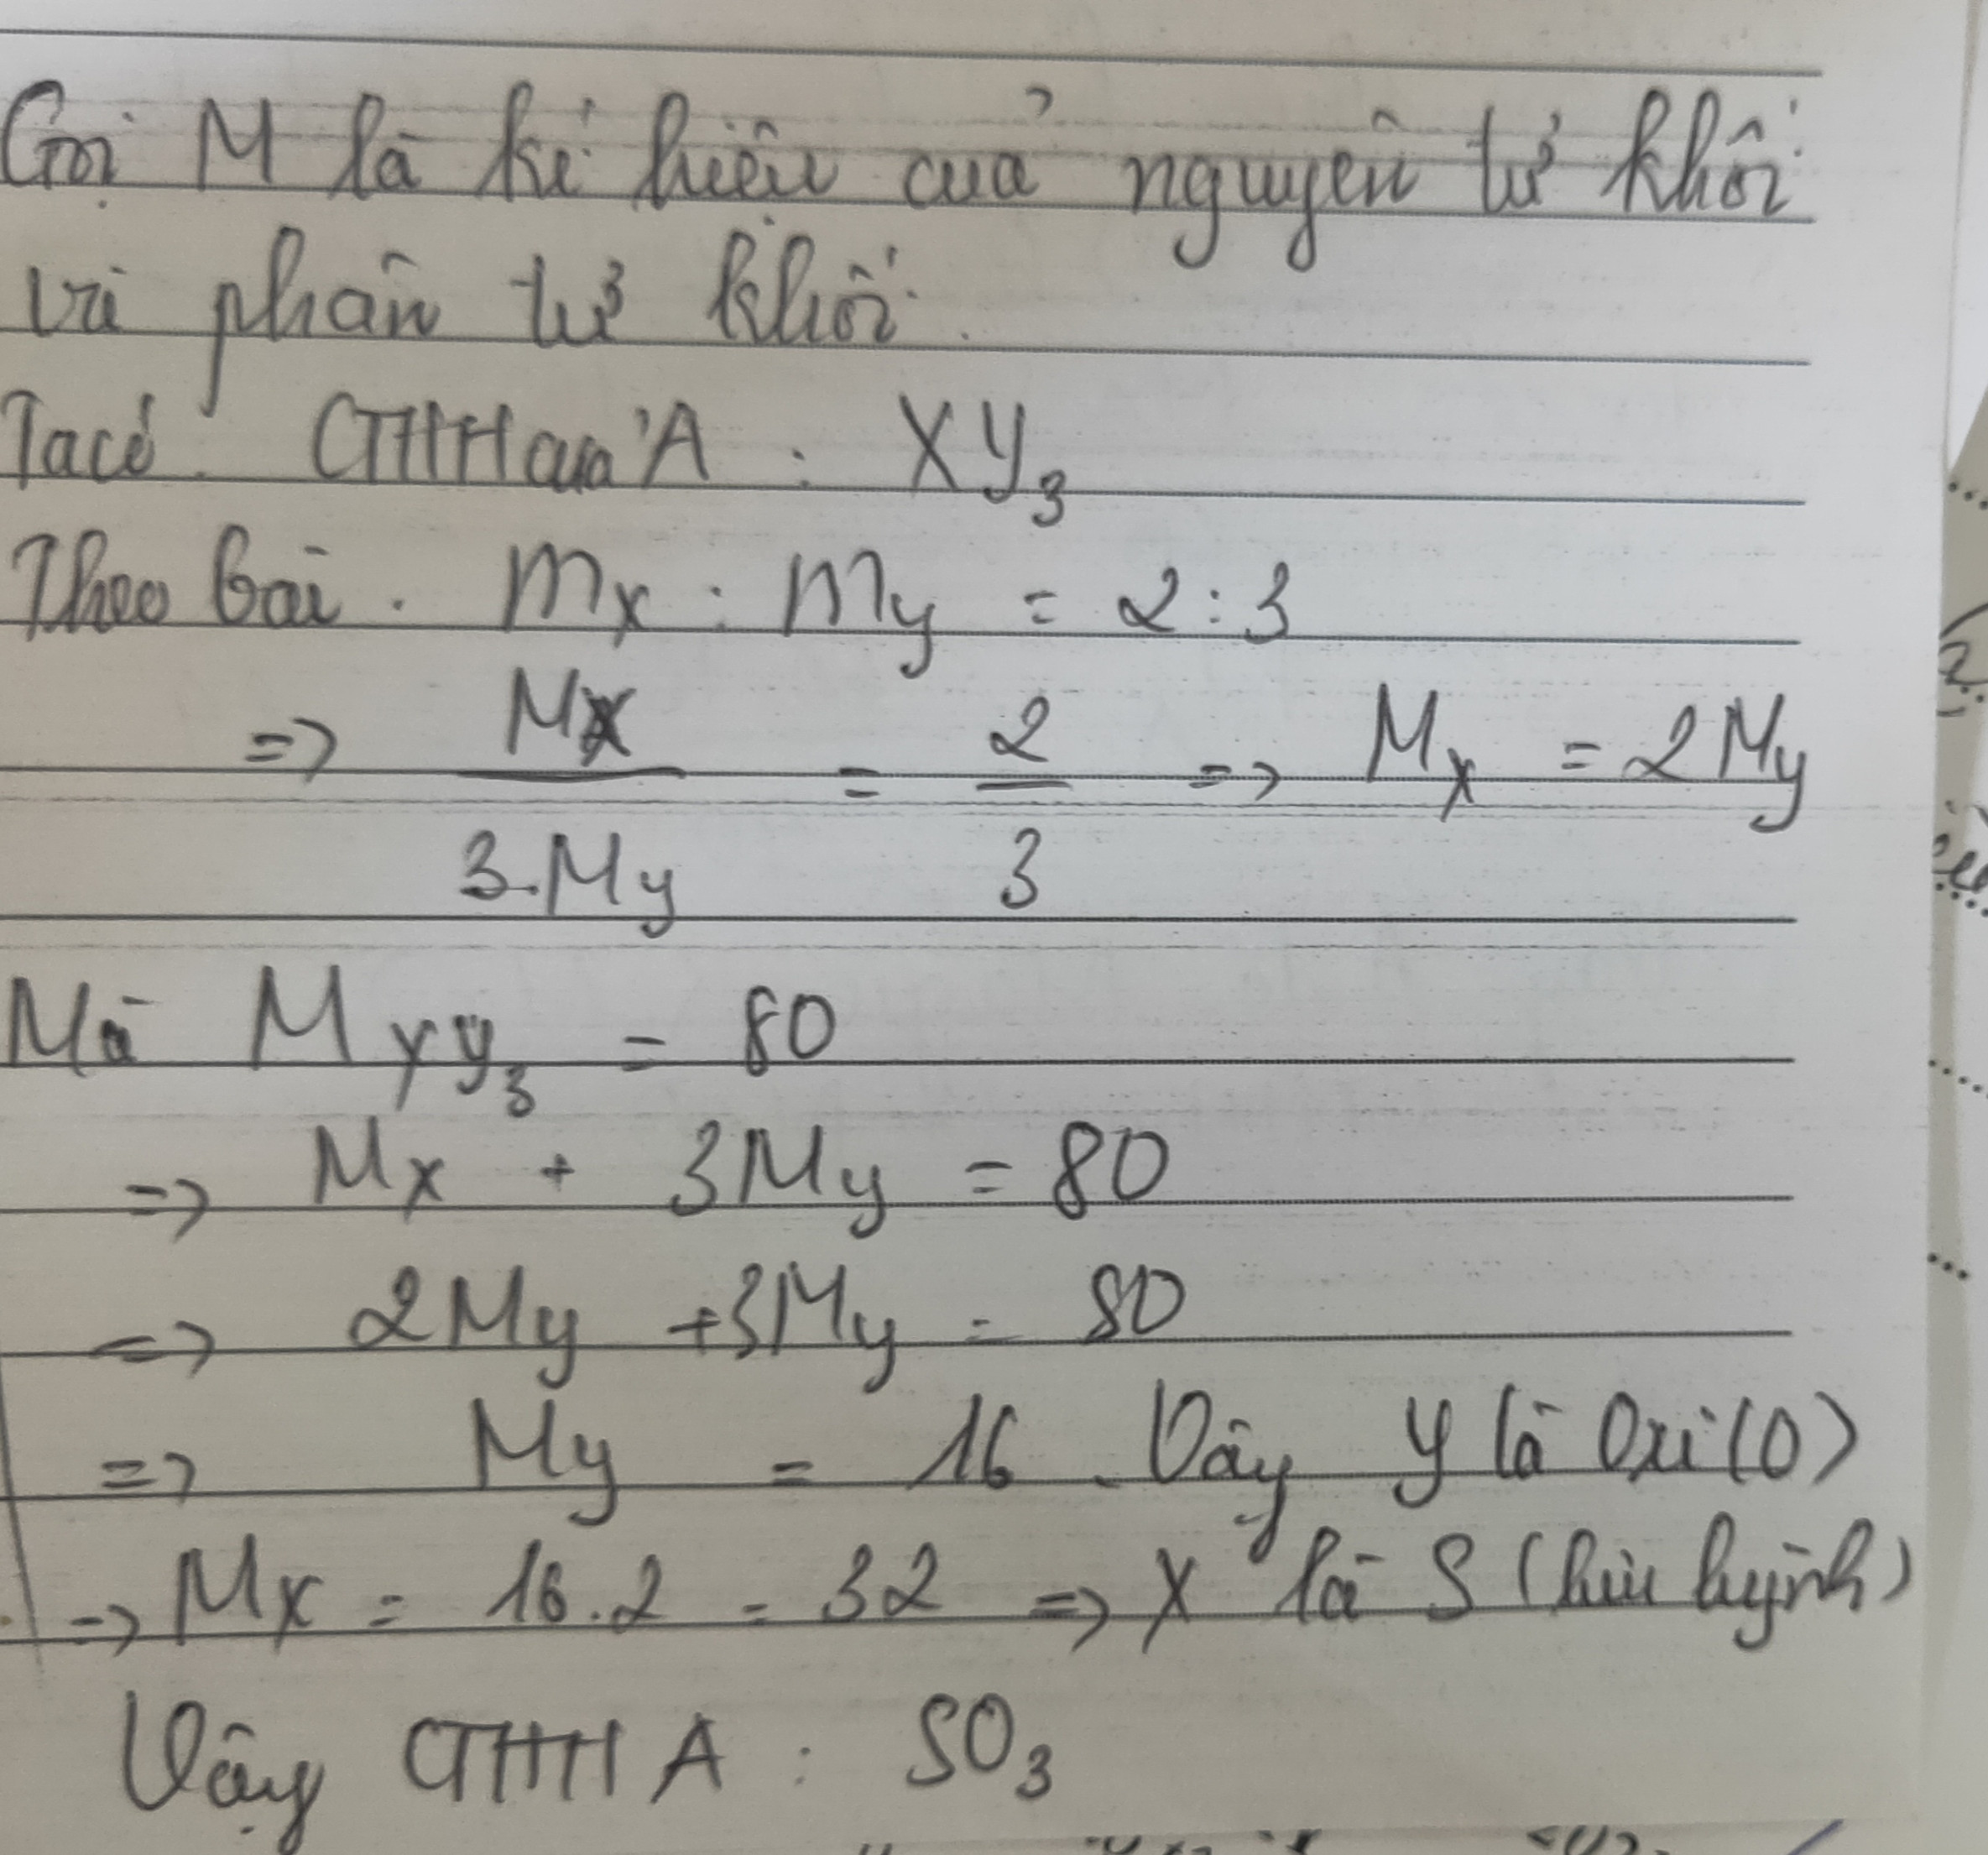 Gọi M là kí hiệu của nguyên tử khối
và phân tử khối.
Ta có. CTHH của A : XY₃
Theo bài. mₓ : mᵧ = 2 : 3
=> Mx / 3.My = 2 / 3 => Mx = 2My
Mà M XY₃ = 80
=> Mx + 3My = 80
=> 2My + 3My = 80
=> My = 16. Vậy Y là Oxi (O)
=> Mx = 16.2 = 32 => X là S (lưu huỳnh)
Vậy CTHH A : SO₃